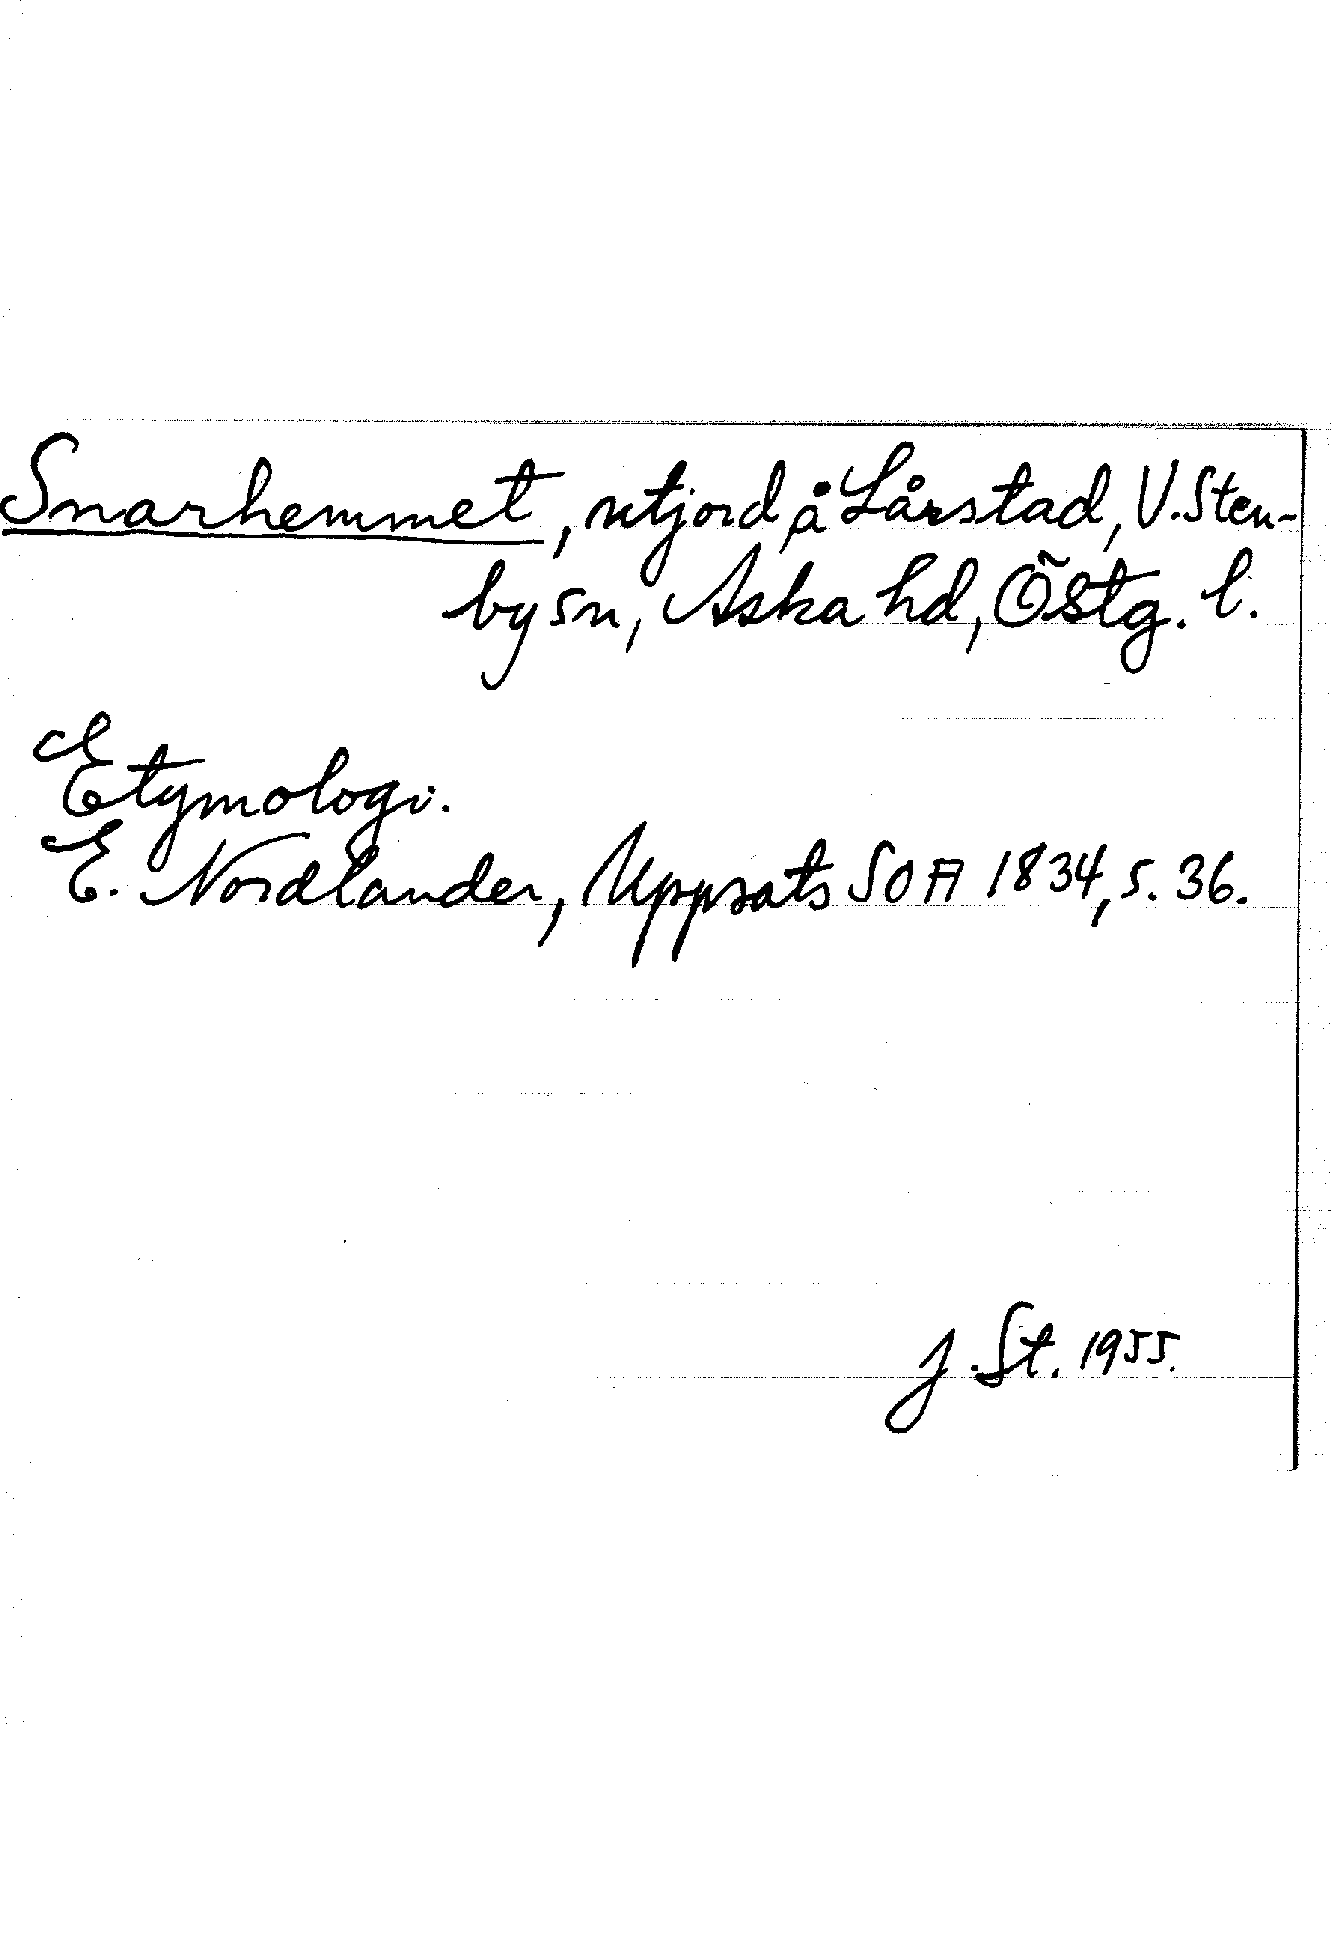 Snarhemmet, utjord å Lårstad, V. Sten-
by sn, Aska hd, Östg. l.
Etymologi.
E. Nordlander, Uppsats SOA 1834, s. 36.
J. St. 1955.